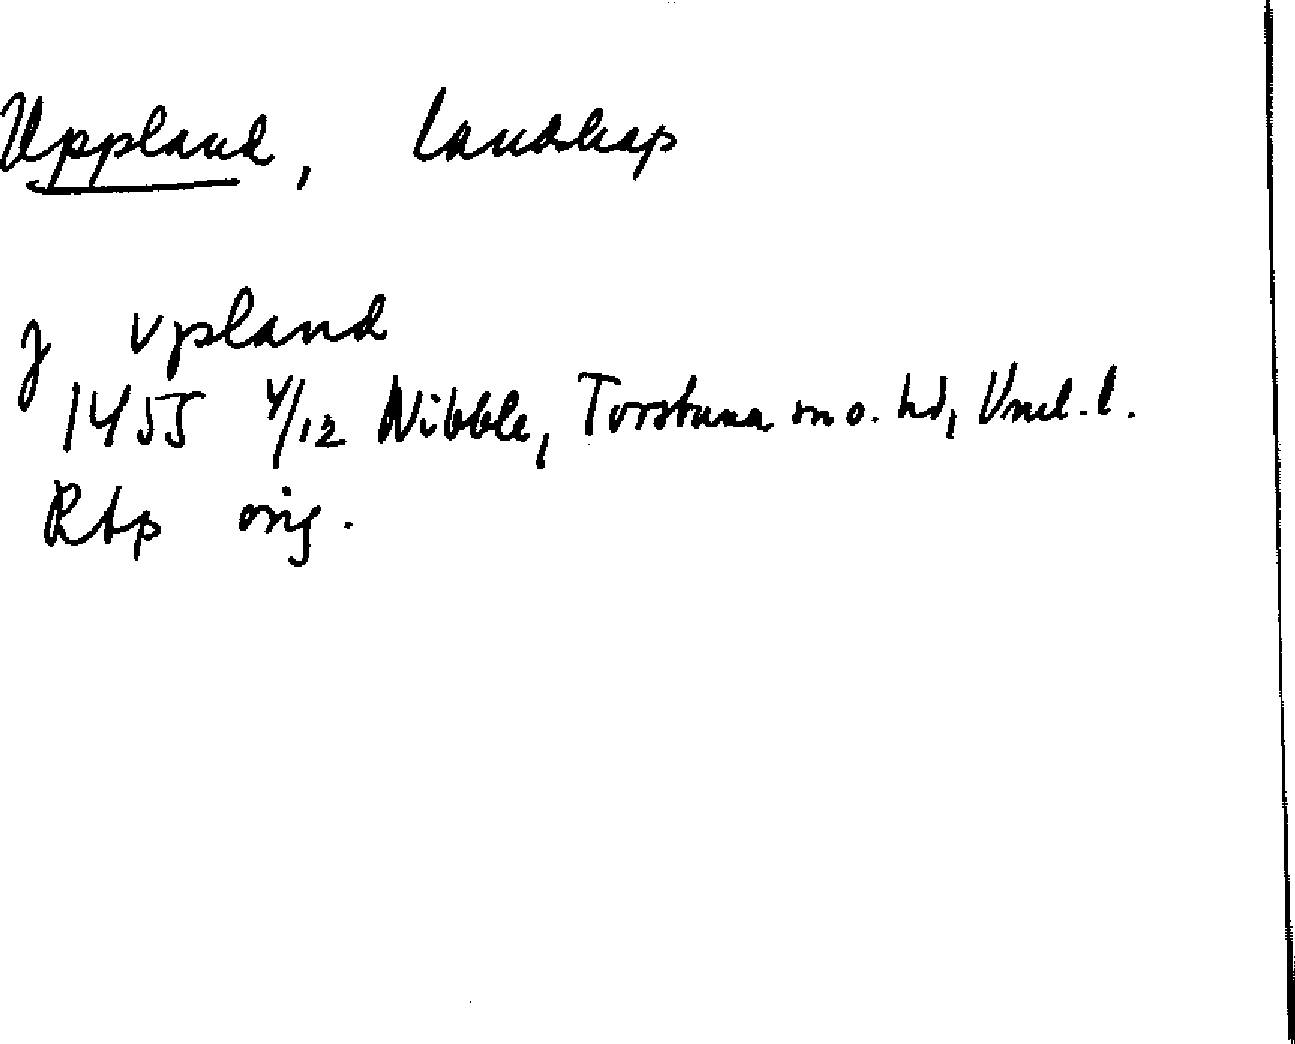 Uppland, Landskap
j vpland
1455 4/12 Nibble, Torstuna sn o. hd, Vml. l.
Rbp orig.